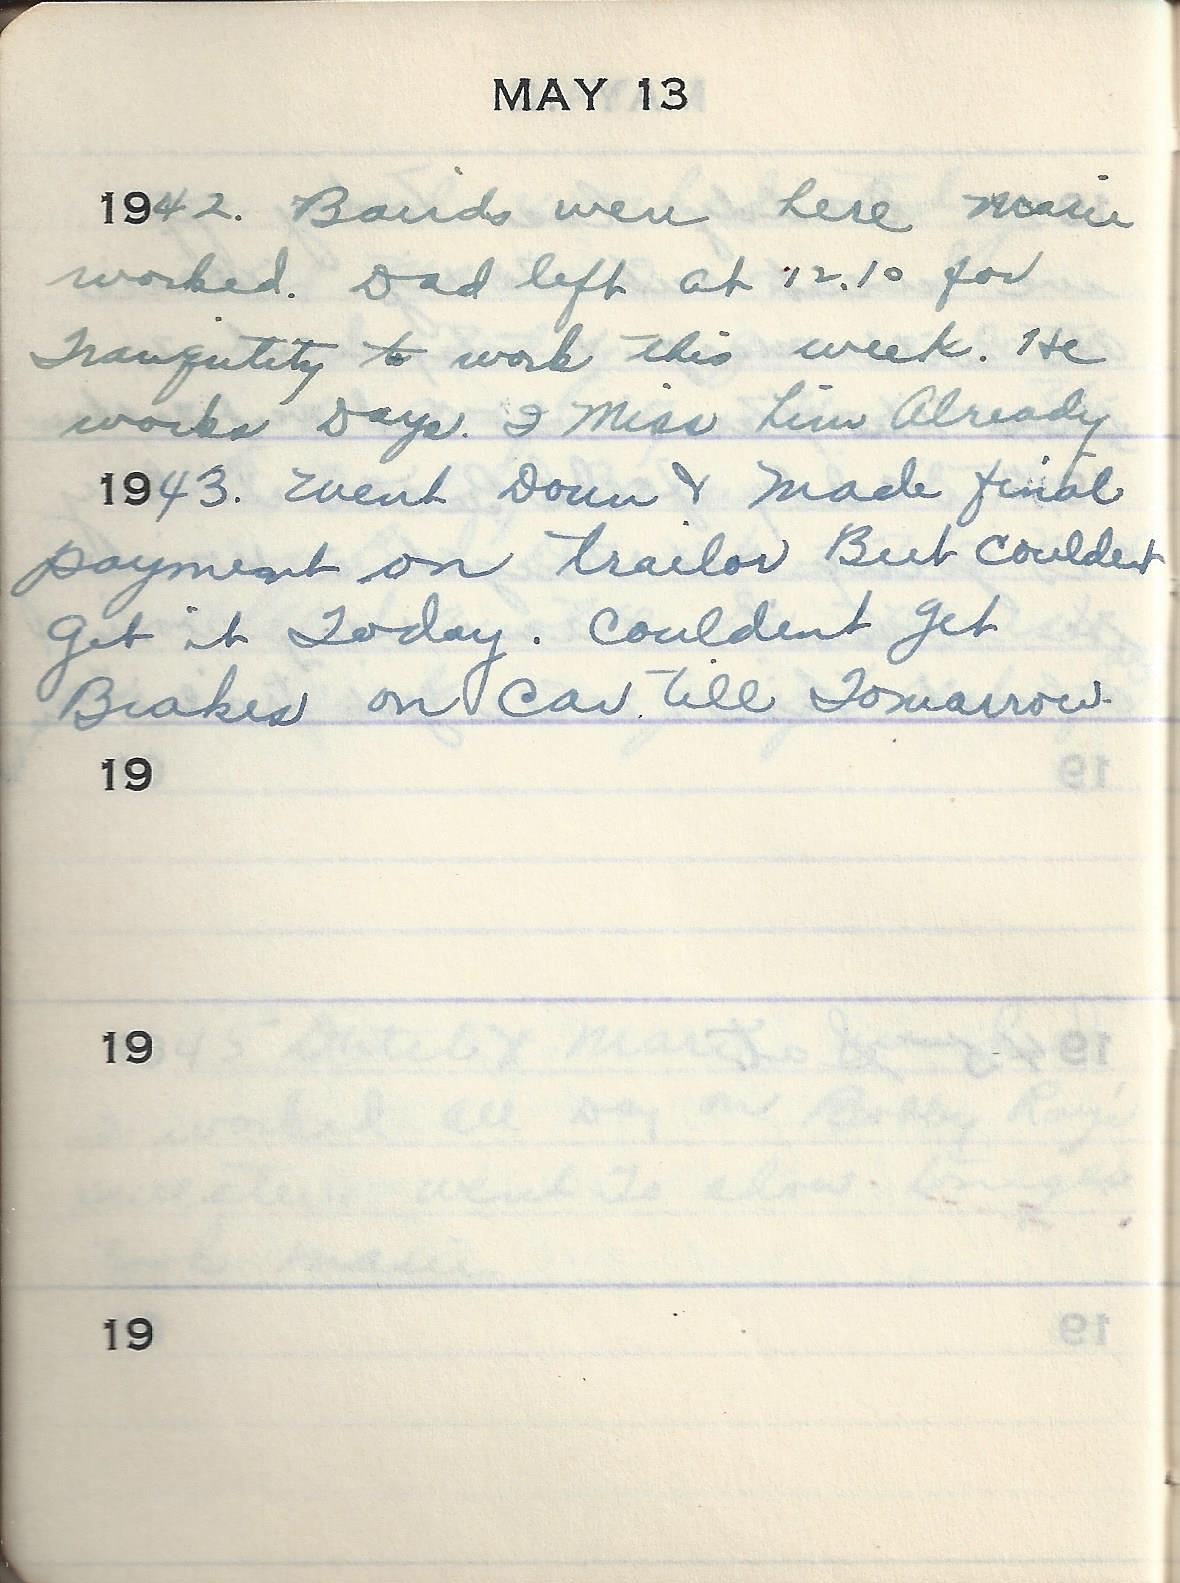 MAY 13
1942. Bairds were here Marie
worked. Dad left at 12.10 for
Tranqutity to work this week. He
works Days. I Miss him Already
1943. Went Down & Made final
payment on trailor But Couldent
Get it Today. Couldent Get
Brakes on Car till Tomarrow.
19
19
45 Marie
worked all Day on Bobby Roy's
went to show.
Marie
19